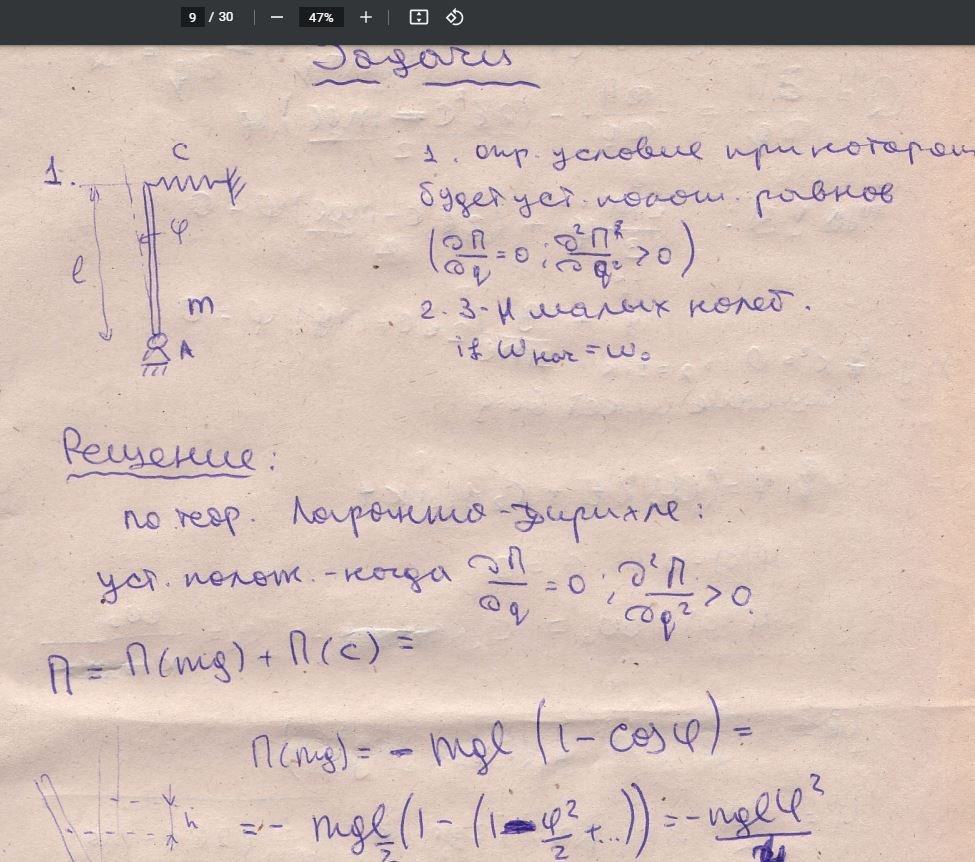 9 / 30 — 47% +
Задачи
1.
c
φ
l
m
A
1. опр. условие при котором
будет уст. полож. равнов
(∂П/∂q = 0 ; ∂²П/∂q² > 0)
2. З-н малых колеб.
if ωнач = ω₀
Решение:
по теор. Лагранжа-Дирихле:
уст. полож. - когда ∂П/∂q = 0 ; ∂²П/∂q² > 0.
П = П(mg) + П(c) =
П(mg) = - mgl (1 - cosφ) =
h
= - mg l/2 (1 - (1 - φ²/2 + ...)) = - mglφ²